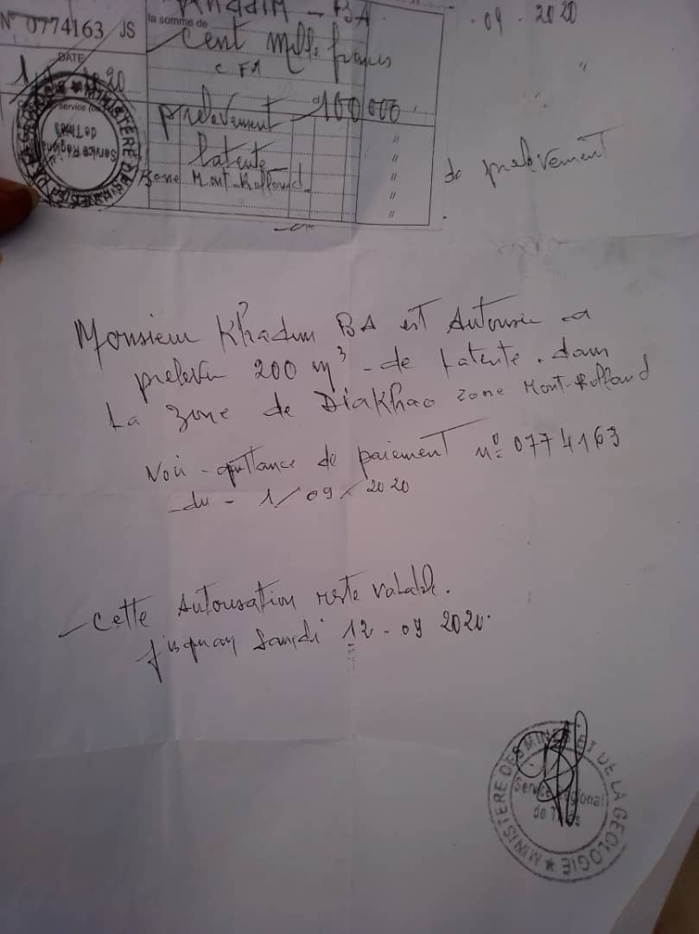 BA
N° 0774163 JS
la somme de
Cent mille francs
CFA
DATE
09 - 2020
prelevement 100 000
latente
zone Mont-Rolland
de prelevement
MINISTERE DES MINES ET DE LA GEOLOGIE
Service Régional
de Thiès
Monsieur Khadim BA est Autorisé a
prelever 200 m³ - de latente. dans
La zone de Diakhao zone Mont-Rolland
Voir - quittance de paiement n° 0774163
du - 1/09/2020
- Cette Autorisation reste valable.
jusquau Samedi 12 - 09 2020.
MINISTERE DES MINES ET DE LA GEOLOGIE
Service Régional
de Thiès